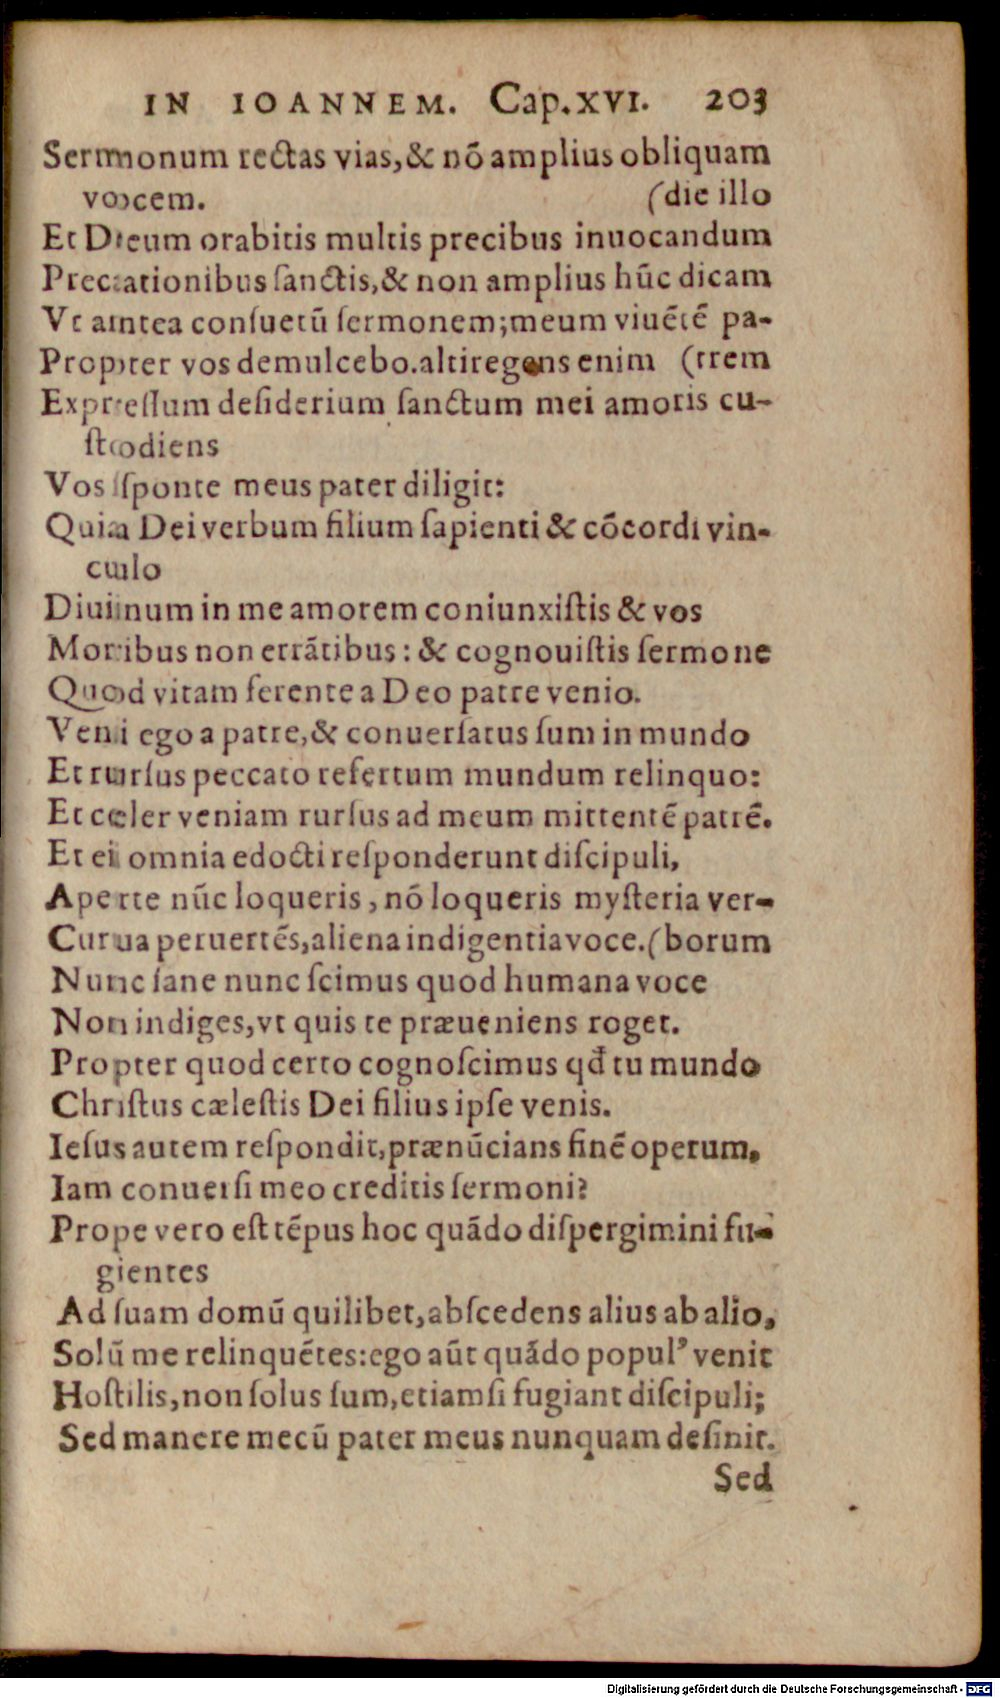 IN IOANNEM. Cap.XVI. 203
Sermonum rectas vias,& nō amplius obliquam
vocem. (die illo
Et Deum orabitis multis precibus inuocandum
Precationibus ſanctis,& non amplius hūc dicam
Vt antea conſuetū ſermonem;meum viuētē pa-
Propter vos demulcebo.altiregens enim (trem
Expreſſum deſiderium ſanctum mei amoris cu-
ſtodiens
Vos ſponte meus pater diligit:
Quia Dei verbum filium ſapienti & cōcordi vin-
culo
Diuinum in me amorem coniunxiſtis & vos
Moribus non errātibus: & cognouiſtis ſermone
Quod vitam ferente a Deo patre venio.
Veni ego a patre,& conuerſatus ſum in mundo
Et rurſus peccato refertum mundum relinquo:
Et celer veniam rurſus ad meum mittentē patrē.
Et ei omnia edocti reſponderunt diſcipuli,
Aperte nūc loqueris, nō loqueris myſteria ver-
Curua peruertēs,aliena indigentia voce.(borum
Nunc ſane nunc ſcimus quod humana voce
Non indiges,vt quis te præueniens roget.
Propter quod certo cognoſcimus qđ tu mundo
Chriſtus cæleſtis Dei filius ipſe venis.
Ieſus autem reſpondit,prænūcians finē operum,
Iam conuerſi meo creditis ſermoni?
Prope vero eſt tēpus hoc quādo diſpergimini fu-
gientes
Ad ſuam domū quilibet,abſcedens alius ab alio,
Solū me relinquētes:ego aūt quādo popul⁹ venit
Hoſtilis,non ſolus ſum,etiamſi fugiant diſcipuli;
Sed manere mecū pater meus nunquam deſinit.
Sed
Digitalisierung gefördert durch die Deutsche Forschungsgemeinschaft - DFG